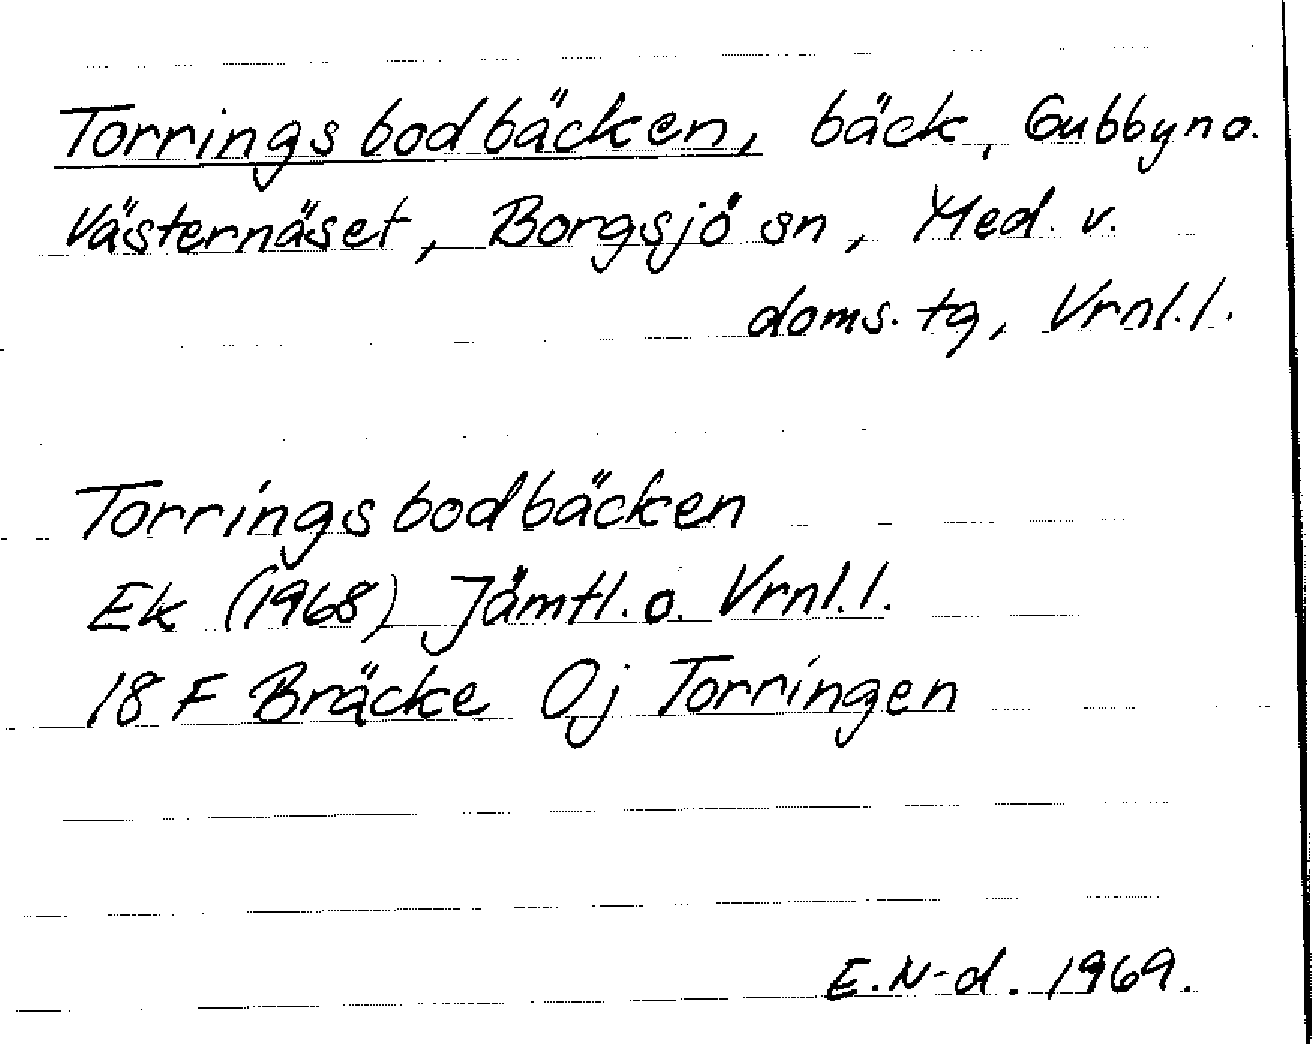 Torringsbodbäcken, bäck, Gubbyn o.
Västernäset, Borgsjö sn, Med. v.
doms. tg, Vrnl.l.
Torringsbodbäcken
Ek (1968) Jämtl. o. Vrnl.l.
18 F Bräcke Oj Torringen
E.N-d. 1969.